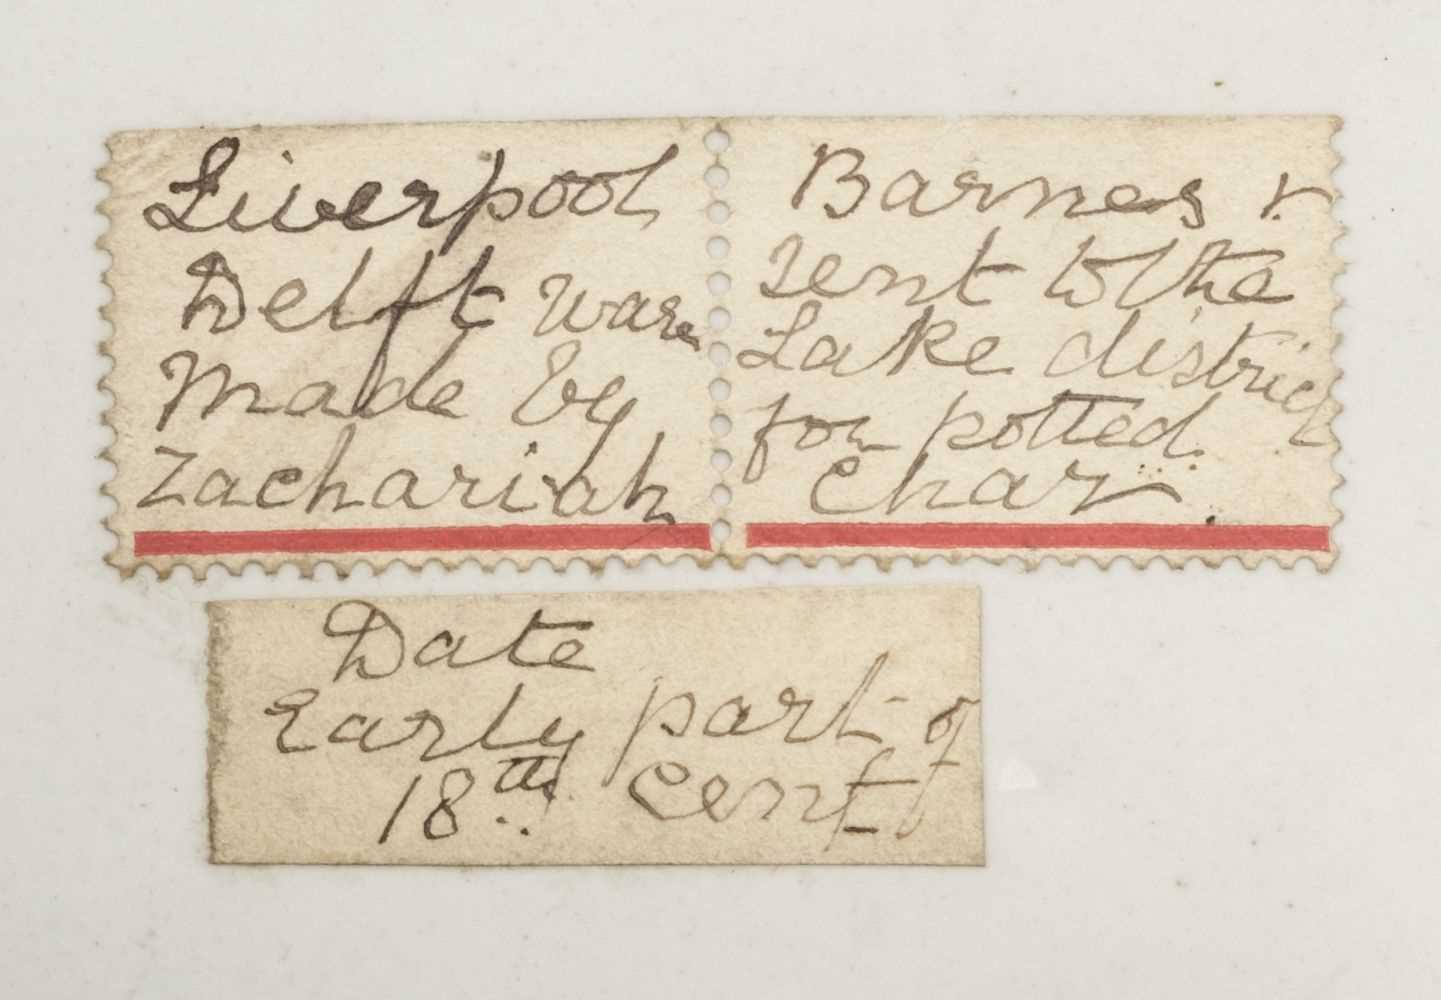 Liverpool
Delft Ware
Made by
Zachariah
Barnes &
sent to the
Lake district
for potted
Char.
Date
Early part of
18th Cent